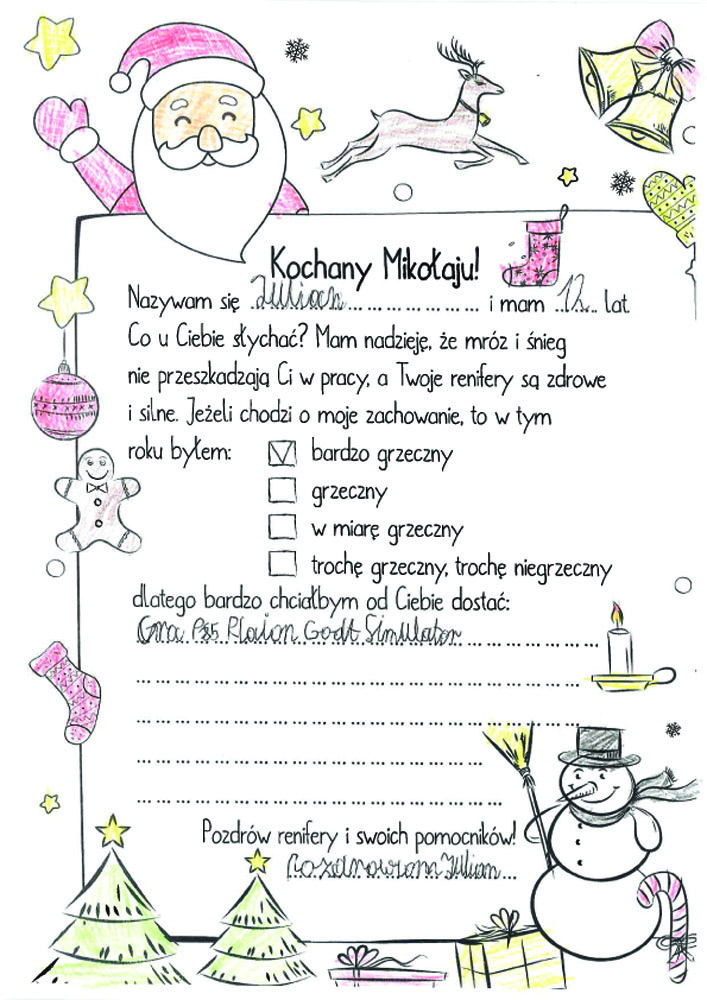 Kochany Mikołaju!
Nazywam się Julian i mam 12 lat.
Co u Ciebie słychać? Mam nadzieję, że mróz i śnieg
nie przeszkadzają Ci w pracy, a Twoje renifery są zdrowe
i silne. Jeżeli chodzi o moje zachowanie, to w tym
roku byłem: bardzo grzeczny
grzeczny
w miarę grzeczny
trochę grzeczny, trochę niegrzeczny
dlatego bardzo chciałbym od Ciebie dostać:
Gra Ps5 Plaion Godt Simulator
Pozdrów renifery i swoich pomocników!
Julian